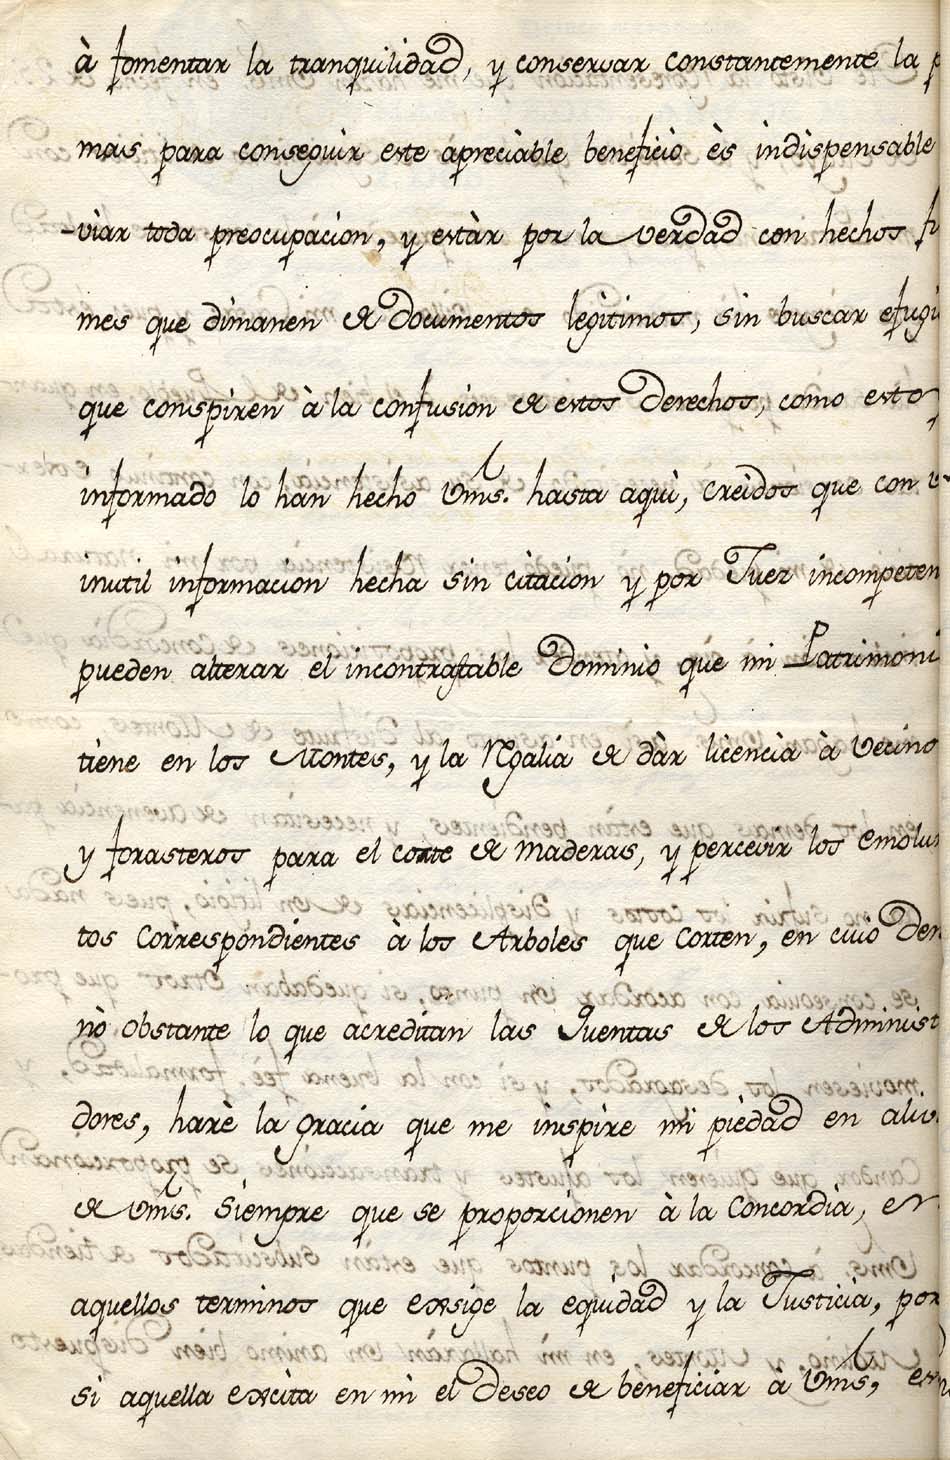 à fomentar la tranquilidad, y conservar constantemente la p
mas para conseguir este apreciable beneficiò ès indispensable
-viar toda preocupacion, y estàr por la verdad con hechos fi
mes que dimanen de Documentos legitimos, sin buscar efugi
que conspiren à la confusion de estos Derechos, como esto
informado lo han hecho Vms. hasta aqui, creidos que con
inutil informacion hecha sin citacion y por Juez incompeten
pueden alterar el incontrastable Dominio que mi Patrimoni
tiene en los Montes, y la Rgalia de dàr licencia à Vecino
y forasteros para el corte de maderas, y percevir los emolum
tos correspondientes à los Arboles que corten, en cuio
nò obstante lo que acreditan las Quentas de los Administ
dores, harè la gracia que me inspire mi piedad en
de Vms. siempre que se proporcionen à la Concordia, en
aquellos terminos que exsige la equidad y la Justicia, por
si aquella excita en mì el deseo de beneficiar à Vms,